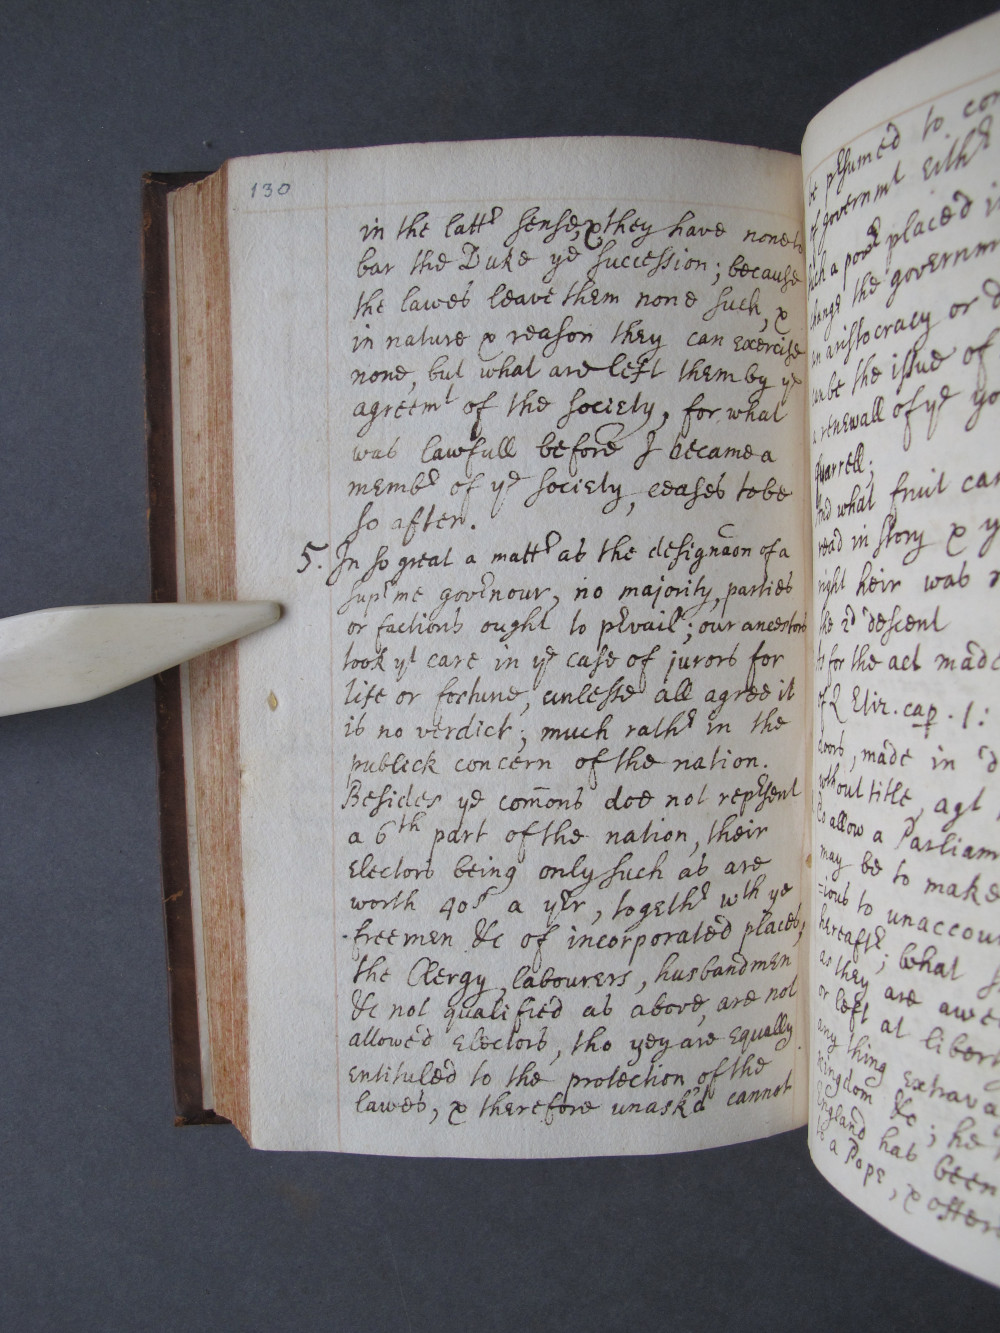 130
in the lattr sense, & they have none to
bar the Duke ye succession; because
the lawes leave them none such, &
in nature & reason they can exercise
none, but what are left them by ye
agreemt of the society, for what
was lawfull before I became a
membr of ye society, ceases to be
so after.
5. In so great a mattr as the designaon of a
supr me govrnour, no majority, parties
or factions ought to prvail; our ancestors
took yt care in ye case of jurors for
life or fortune, unlesse all agree it
is no verdict; much rathr in the
publick concern of the nation.
Besides ye comons doe not reprsent
a 6th part of the nation, their
Electors being only such as are
worth 40s a yer, togethr wth ye
freemen &c of incorporated places,
the Clergy, labourers, husbandmen
&c not qualified as above, are not
allowed Electors, tho yey are Equally
Entituled to the protection of the
lawes, & therefore unask'd cannot
be prsumed to
of governmt Eithr
such a powr placed
change the governm
an aristocracy or
can be the issue of
a renewall of ye
quarrell;
And what fruit can
read in story &
right heir was
the 2d descent
As for the act made
of Q Eliz. cap. 1:
made in
without title, agt
To allow a Parliam
may be to make
=ious to unaccou
hereaftr; what
as they are
or left at libert
any thing Extrava
Kingdom &c; he
England has been
to a Pope, & offer